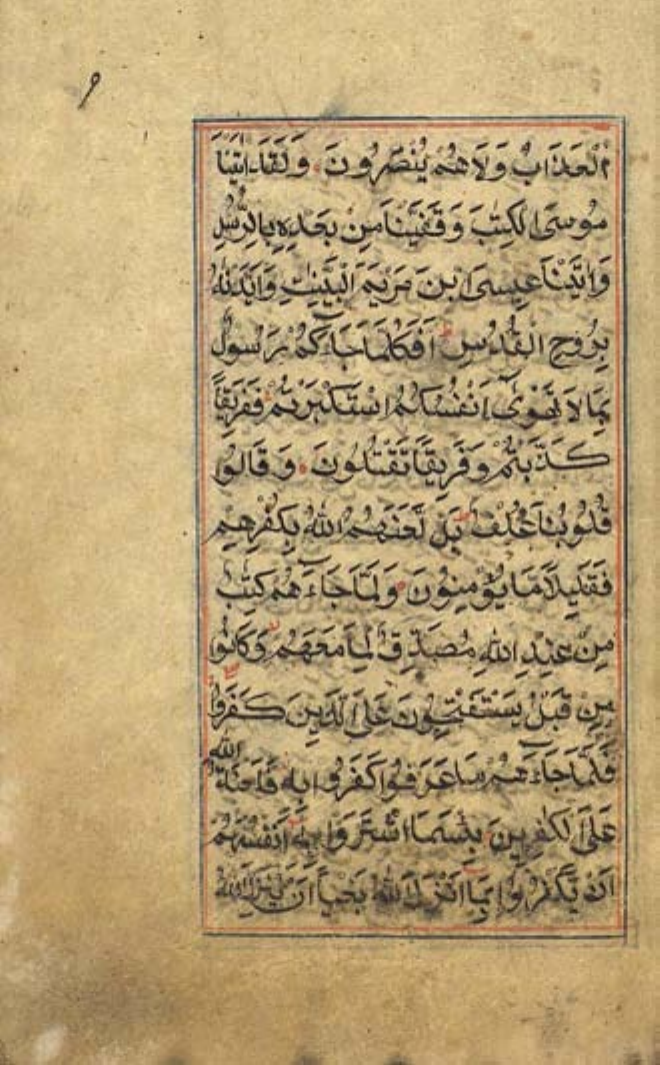 ۹
الْعَذَابُ وَلَا هُمْ يُنْصَرُونَ وَلَقَدْ اٰتَيْنَا
مُوسَى الْكِتٰبَ وَقَفَّيْنَا مِنْ بَعْدِهٖ بِالرُّسُلِ
وَاٰتَيْنَا عِيسَى ابْنَ مَرْيَمَ الْبَيِّنٰتِ وَاَيَّدْنٰهُ
بِرُوحِ الْقُدُسِ ط اَفَكُلَّمَا جَآءَكُمْ رَسُولٌ
بِمَا لَا تَهْوٰىٓ اَنْفُسُكُمُ اسْتَكْبَرْتُمْ فَفَرِيقًا
كَذَّبْتُمْ وَفَرِيقًا تَقْتُلُونَ وَقَالُوا
قُلُوبُنَا غُلْفٌ ط بَلْ لَعَنَهُمُ اللّٰهُ بِكُفْرِهِمْ
فَقَلِيلًا مَا يُؤْمِنُونَ وَلَمَّا جَآءَهُمْ كِتٰبٌ
مِنْ عِنْدِ اللّٰهِ مُصَدِّقٌ لِمَا مَعَهُمْ وَكَانُوا
مِنْ قَبْلُ يَسْتَفْتِحُونَ عَلَى الَّذِينَ كَفَرُوا
فَلَمَّا جَآءَهُمْ مَا عَرَفُوا كَفَرُوا بِهٖ فَلَعْنَةُ اللّٰهِ
عَلَى الْكٰفِرِينَ بِئْسَمَا اشْتَرَوْا بِهٖٓ اَنْفُسَهُمْ
اَنْ يَكْفُرُوا بِمَآ اَنْزَلَ اللّٰهُ بَغْيًا اَنْ يُنَزِّلَ اللّٰهُ